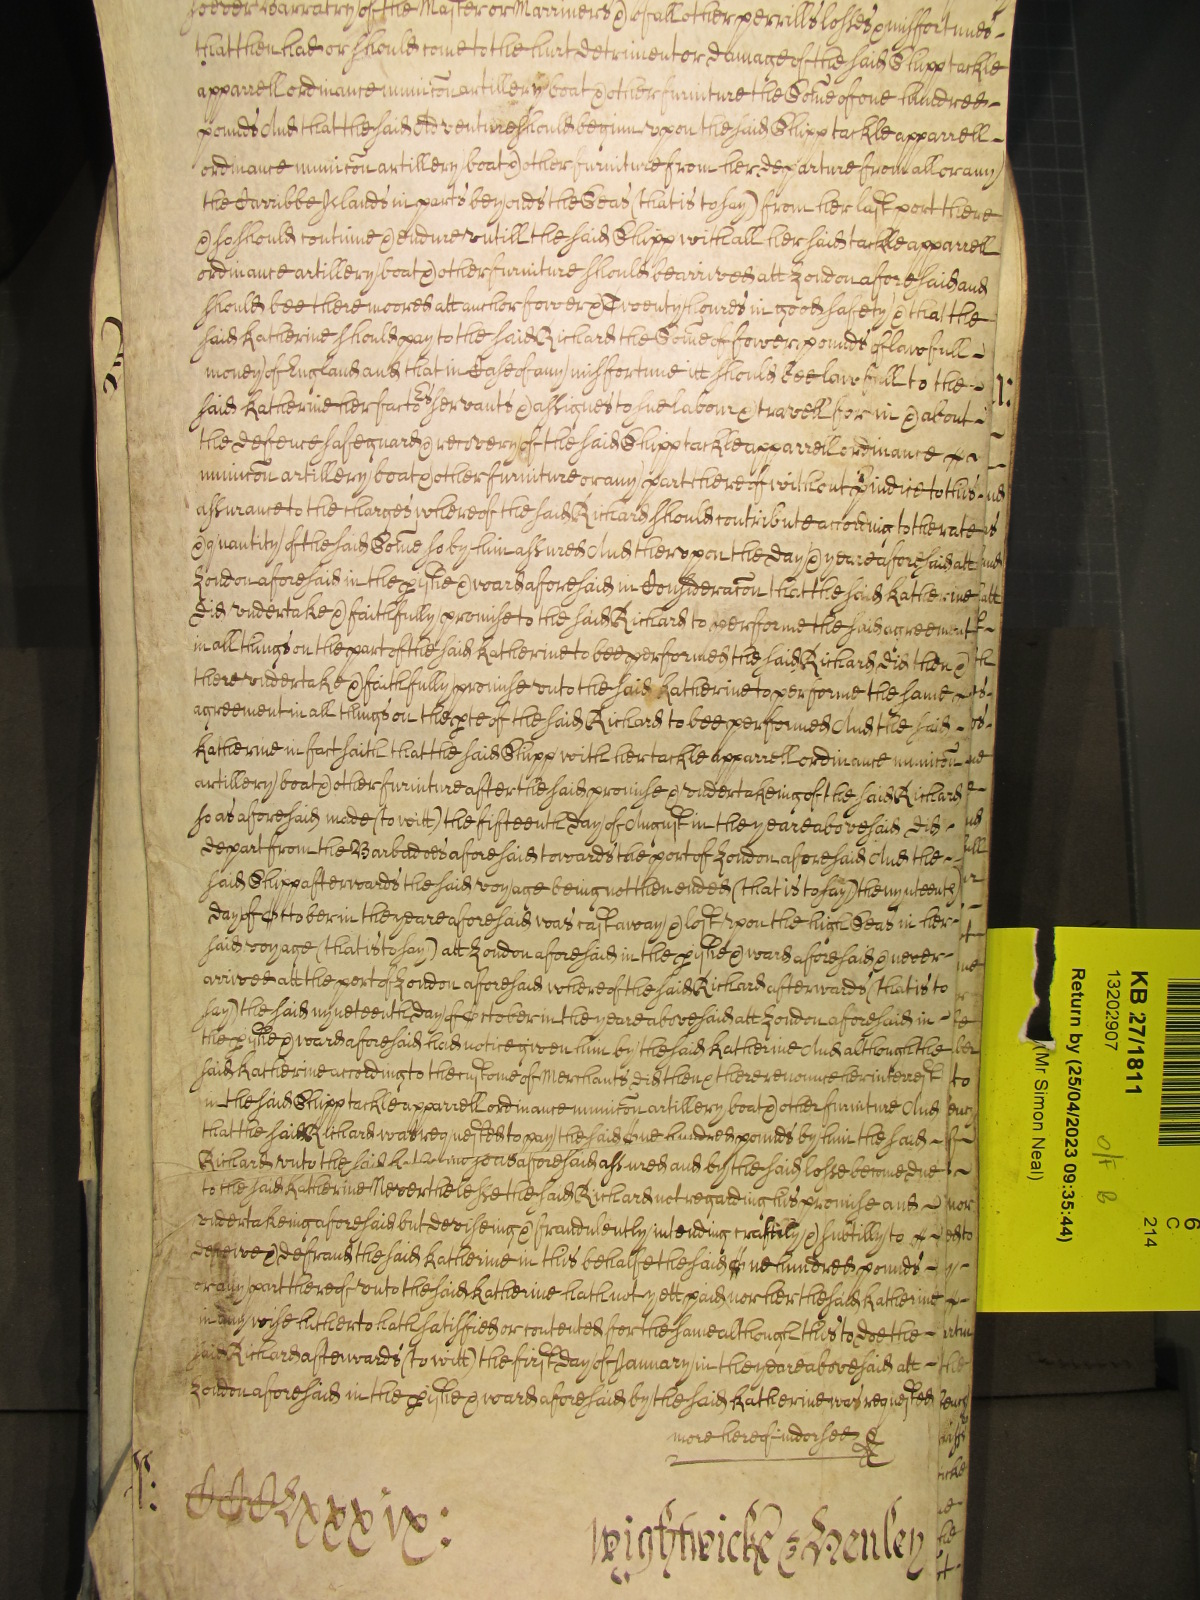 soever Barratry of the Master or Marriners & of all other perrills losses & misfortunes
that then had or should come to the hurt detriment or damage of the said Shipp tackle
apparrell ordinance municon artillery boat & other furniture the Some of one hundred
pounds And that the said Adventure should beginn upon the said Shipp tackle apparrell
ordinance municon artillery boat & other furniture from her departure from all or any
the Carribbe Islands in parts beyonds the Seas (that is to say) from her last port there
& so should continue & endure untill the said Shipp with all her said tackle apparrell
ordinance artillery boat & other furniture should be arrived att London aforesaid and
should bee there moored att anchor fower & Twenty houres in good safety & that the
said Katherine should pay to the said Richard the Some of fower pounds of lawfull
money of England and that in Case of any misfortune itt should bee lawfull to the
said Katherine her factors servants & assignes to sue labour & travell for in & about
the defence safeguard & recovery of the said Shipp tackle apparrell ordinance
municon artillery boat & other furniture or any part thereof without piudice to this
assurance to the charges whereof the said Richard should contribute according to the rate
& quantity of the said Some so by him assured And therupon the day & yeare aforesaid att
London aforesaid in the pishe & ward aforesaid in Consideracon that the said Katherine
did undertake & faithfully promise to the said Richard to performe the said agreement
in all things on the part of the said Katherine to bee performed the said Richard did then &
there undertake & faithfully promise unto the said Katherine to performe the same
agreement in all things on the pte of the said Richard to bee performed And the said
Katherine in fact saith that the said Shipp with her tackle apparrell ordinance municon
artillery boat & other furniture after the said promise & undertakeing of the said Richard
so as aforesaid made (to witt) the fifteenth day of August in the yeare abovesaid did
depart from the Barbadoes aforesaid towards the port of London aforesaid And the
said Shipp afterwards the said voyage being not then ended (that is to say) the nyneteenth
day of October in the yeare aforesaid was cast away & lost upon the high Seas in her
said voyage (that is to say) att London aforesaid in the pishe & ward aforesaid & never
arrived att the port of London aforesaid whereof the said Richard afterwards (that is to
say) the said nyneteenth day of October in the yeare abovesaid att London aforesaid in
the pishe & ward aforesaid had notice given him by the said Katherine And although the
said Katherine according to the custome of Merchants did then & there renounce her interest
in the said Shipp tackle apparrell ordinance municon artillery boat & other furniture And
that the said Richard was requested to pay the said one hundred pounds by him the said
Richard unto the said Katherine soe as aforesaid assured and by the said losse become due
to the said Katherine Neverthelesse the said Richard not regarding his promise and
undertakeing aforesaid but deviseing & fraudulently intending craftily & subtilly to
deceive & defraud the said Katherine in this behalfe the said One hundred pounds
or any part thereof unto the said Katherine hath not yett paid nor her the said Katherine
in any wise hitherto hath satisfied or contented for the same although this to doe the
said Richard afterwards (to witt) the first day of January in the yeare abovesaid att
London aforesaid in the pishe & ward aforesaid by the said Katherine was requested
more hereof indorsed
CCClxxxix:
Wightwicke & Henley
KB 27/1811
13202907
Return by (25/04/2023 09:35:44)
(Mr Simon Neal)
O/F B
6
C
214